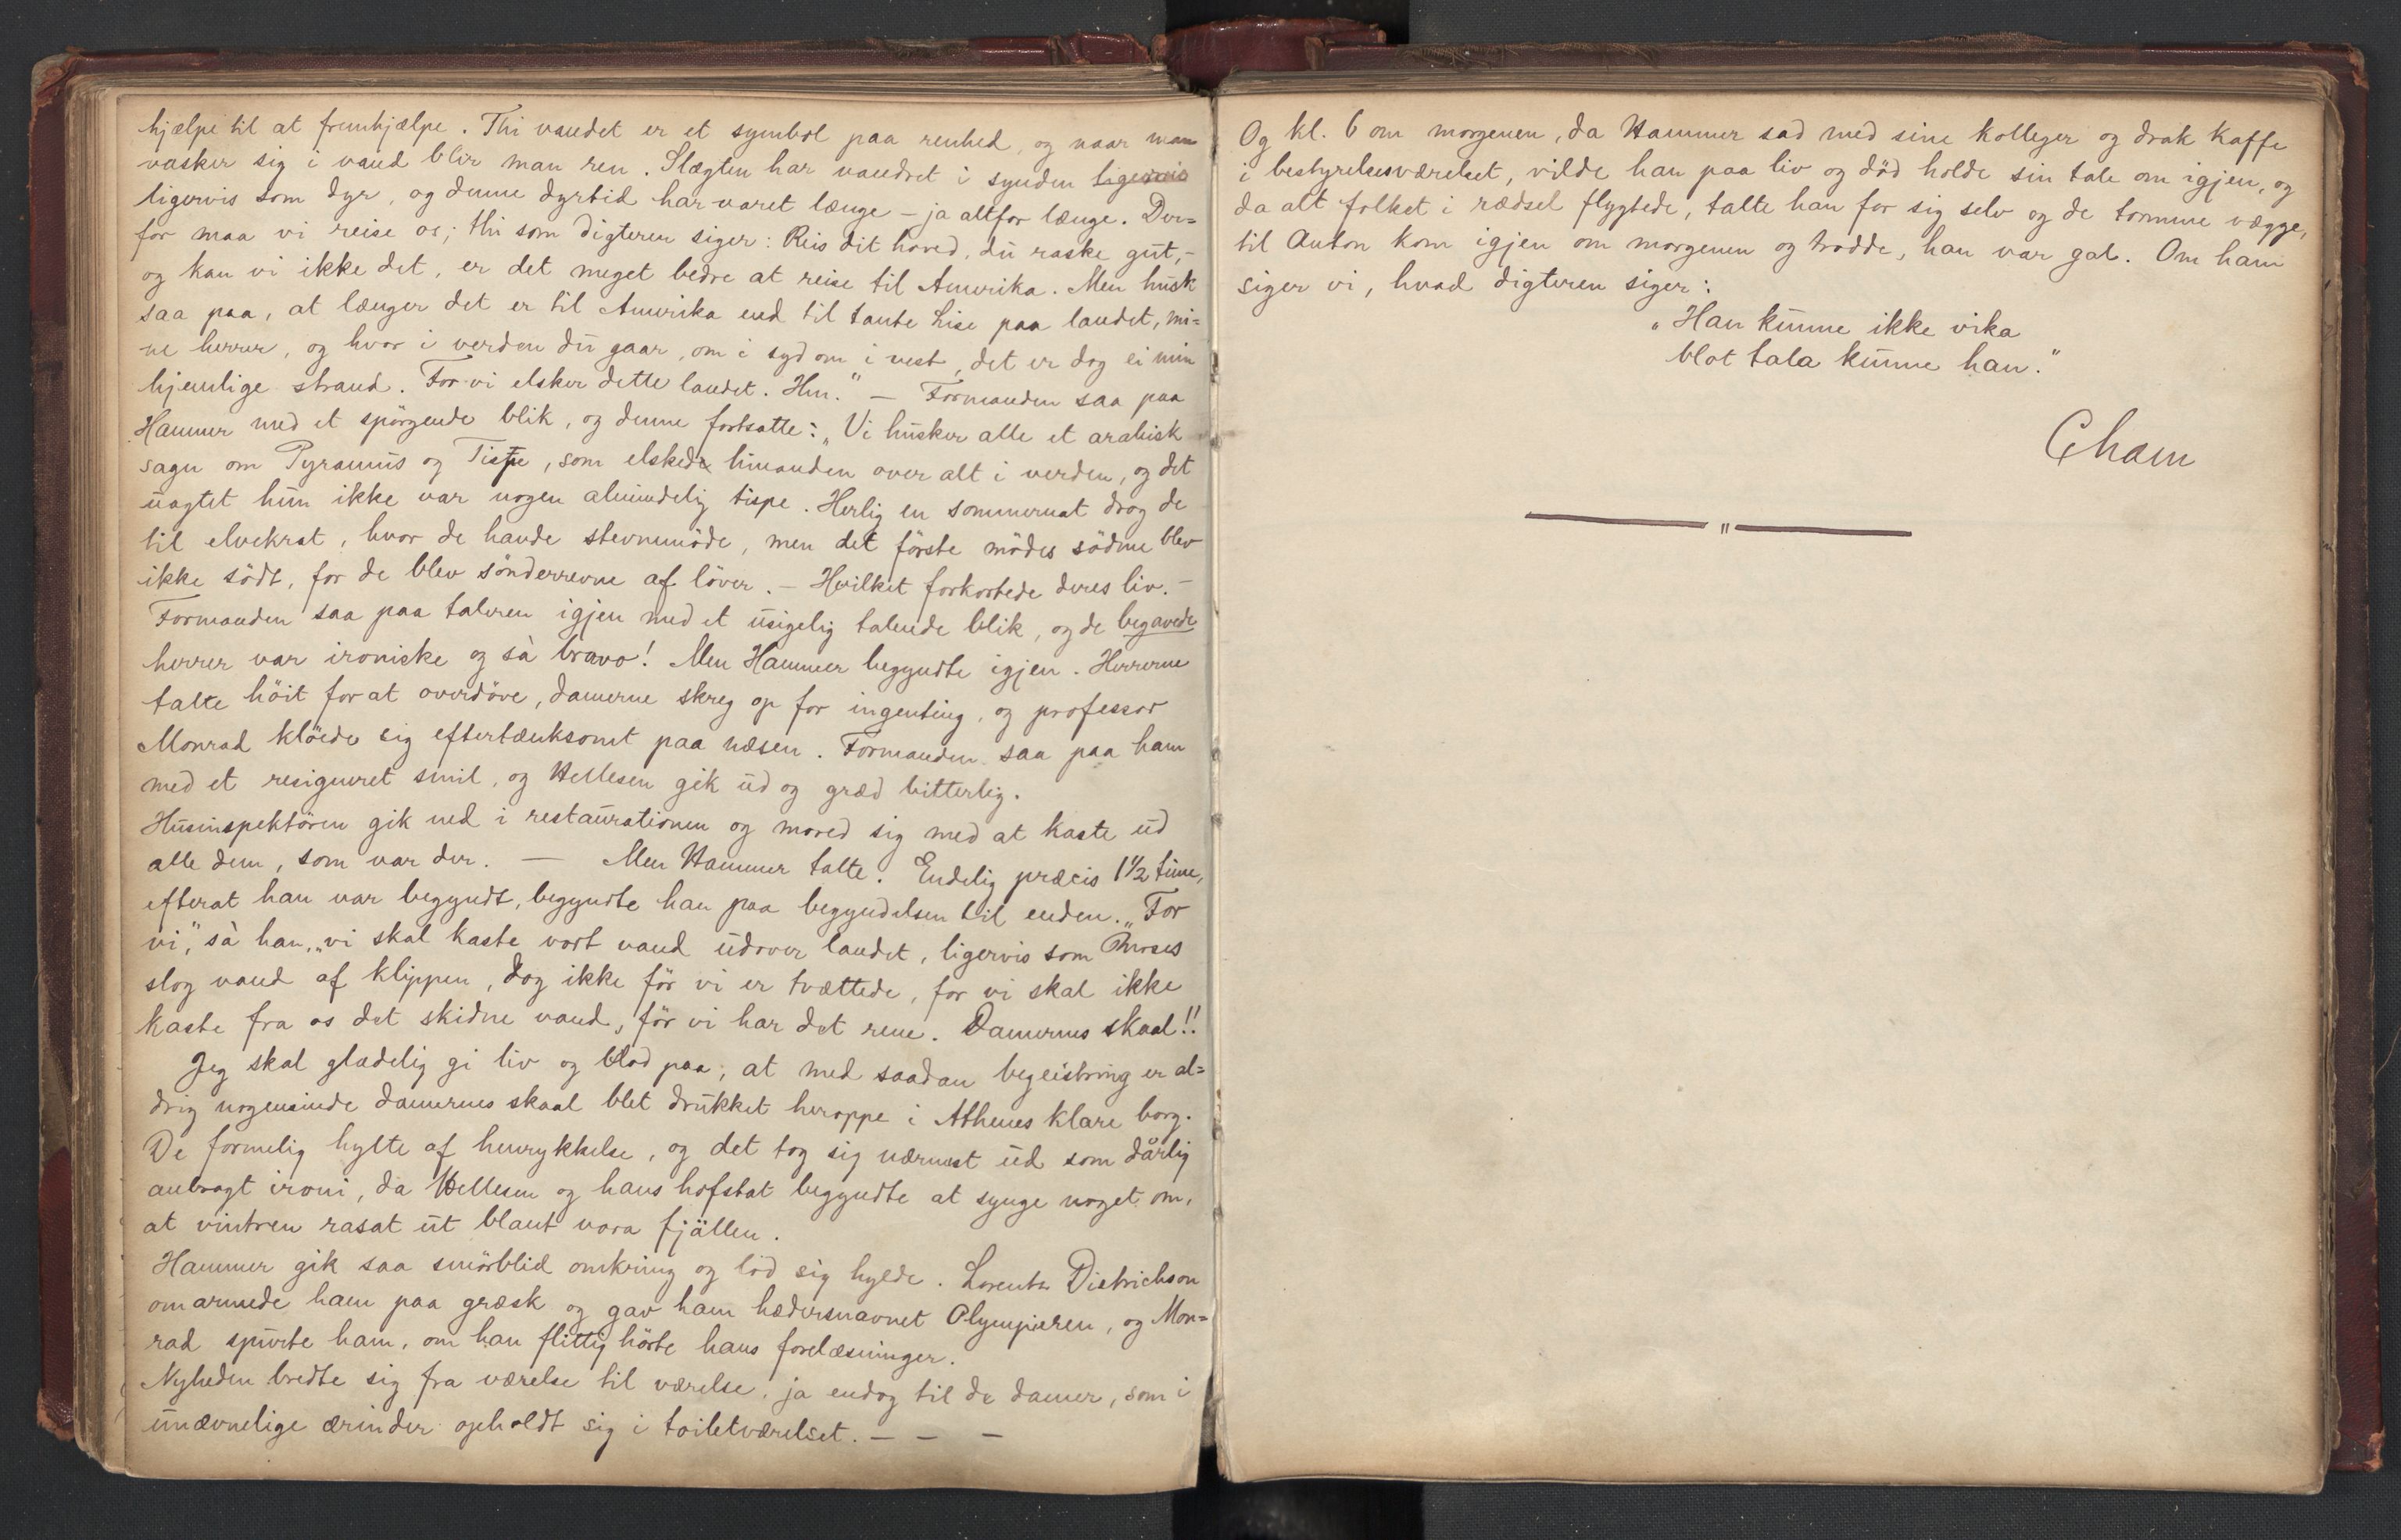 hjælpe til at fremhjælpe. Thi vandet er et symbol paa renhed, og naar man
vasker sig i vand blir man ren. Slægten har vandret i synden ligervis
ligervis som dyr, og denne dyrtid har varet længe – ja altfor længe. Der=
for maa vi reise os; thi som digteren siger: Reis dit hoved, du raske gut, –
og kan vi ikke det, er det meget bedre at reise til Amerika. Men husk
saa paa, at længer det er til Amerika end til tante Lise paa landet, mi=
ne herrer, og hvor i verden du gaar, om i syd om i vest, det er dog ei min
hjemlige strand. For vi elsker dette landet. Hm." – Formanden saa paa
Hammer med et spörgende blik, og denne fortsatte: „Vi husker alle et arabisk
sagn om Pyramus og Tispe, som elskede hinanden over alt i verden, og det
uagtet hun ikke var nogen almindelig tispe. Herlig en sommernat drog de
til elvekrat, hvor de havde stevnemöde, men det förste mödes södme blev
ikke södt, for de blev sönderrevne af löver. – Hvilket forkortede deres liv. –
Formanden saa paa taleren igjen med et usigelig talende blik, og de begavede
herrer var ironiske og sà bravo! Men Hammer begyndte igjen. Herrerne
talte höit for at overdöve, damerne skreg op for ingenting, og professor
Monrad klöede sig eftertænksomt paa næsen. Formanden saa paa ham
med et resigneret smil, og Hellesen gik ud og græd bitterlig.
Husinspektören gik ned i restaurationen og mored sig med at kaste ud
alle dem, som var der. — Men Hammer talte. Endelig præcis 1½ time,
efterat han var begyndt, begyndte han paa begyndelsen til enden. „For
vi," sà han, „vi skal kaste vort vand udover landet, ligervis som Moses
slog vand af klippen, dog ikke för vi er tvættede, for vi skal ikke
kaste fra os det skidne vand, för vi har det rene. Damernes skaal!!
Jeg skal gladelig gi liv og blod paa, at med saadan begeistring er al=
drig nogensinde damernes skaal blet drukket heroppe i Athenes klare borg.
De formelig hylte af henrykkelse, og det tog sig nærmest ud som dårlig
anbragt ironi, da Hellesen og hans hofstat begyndte at synge noget om,
at vintren rasat ut blant vora fjällen.
Hammer gik saa smörblid omkring og lod sig hylde. Lorentz Dietrichson
omarmede ham paa græsk og gav ham hædersnavnet Olympieren, og Mon=
rad spurte ham, om han flittig hörte hans forelæsninger.
Nyheden bredte sig fra værelse til værelse, ja endog til de damer, som i
unævnelige ærinder opholdt sig i toiletværelset. – – –
Og kl. 6 om morgenen, da Hammer sad med sine kolleger og drak kaffe
i bestyrelsesværelset, vilde han paa liv og död holde sin tale om igjen, og
da alt folket i rædsel flygtede, talte han for sig selv og de tomme vægge,
til Anton kom igjen om morgenen og trodde, han var gal. Om ham
siger vi, hvad digteren siger:
„Han kunne ikke vika
blot tala kunne han."
Cham